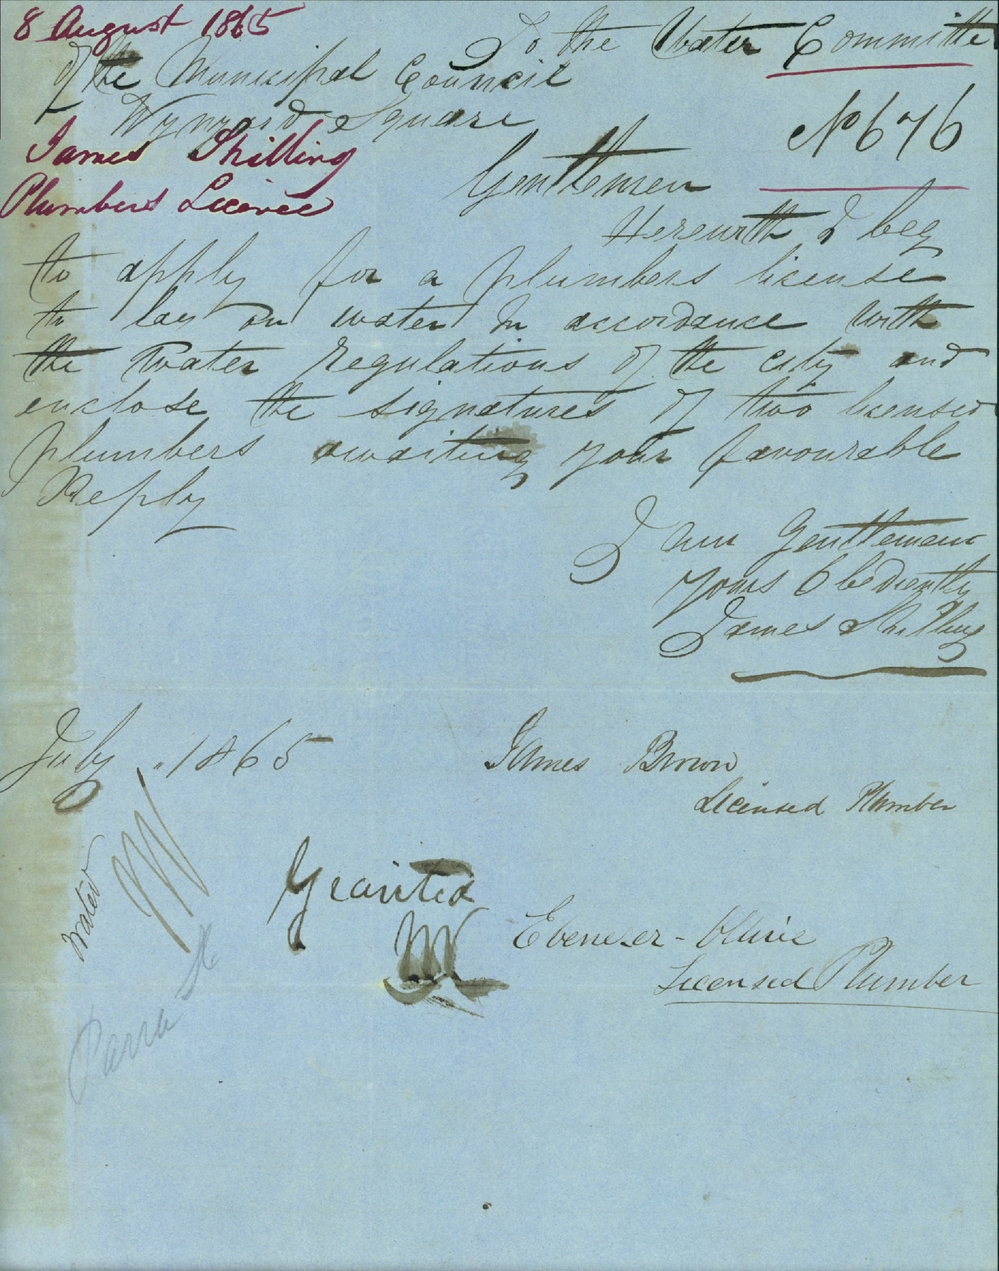 8 August 1865
To the Water Committe
of the Municipal Council
Wynyard Square
No 676
James Skilling
Plumbers Licence
Gentlemen
Herewith I beg
to apply for a plumbers license
to lay on water in accordance with
the Water regulations of the city and
enclose the signatures of two licensed
plumbers awaiting your favourable
Reply
I am Gentlemen
yours Obediently
James Skilling
July . 1865
James Brown
Licensed Plumber
Water
Granted
Ebenezer
Licensed Plumber
Parra St